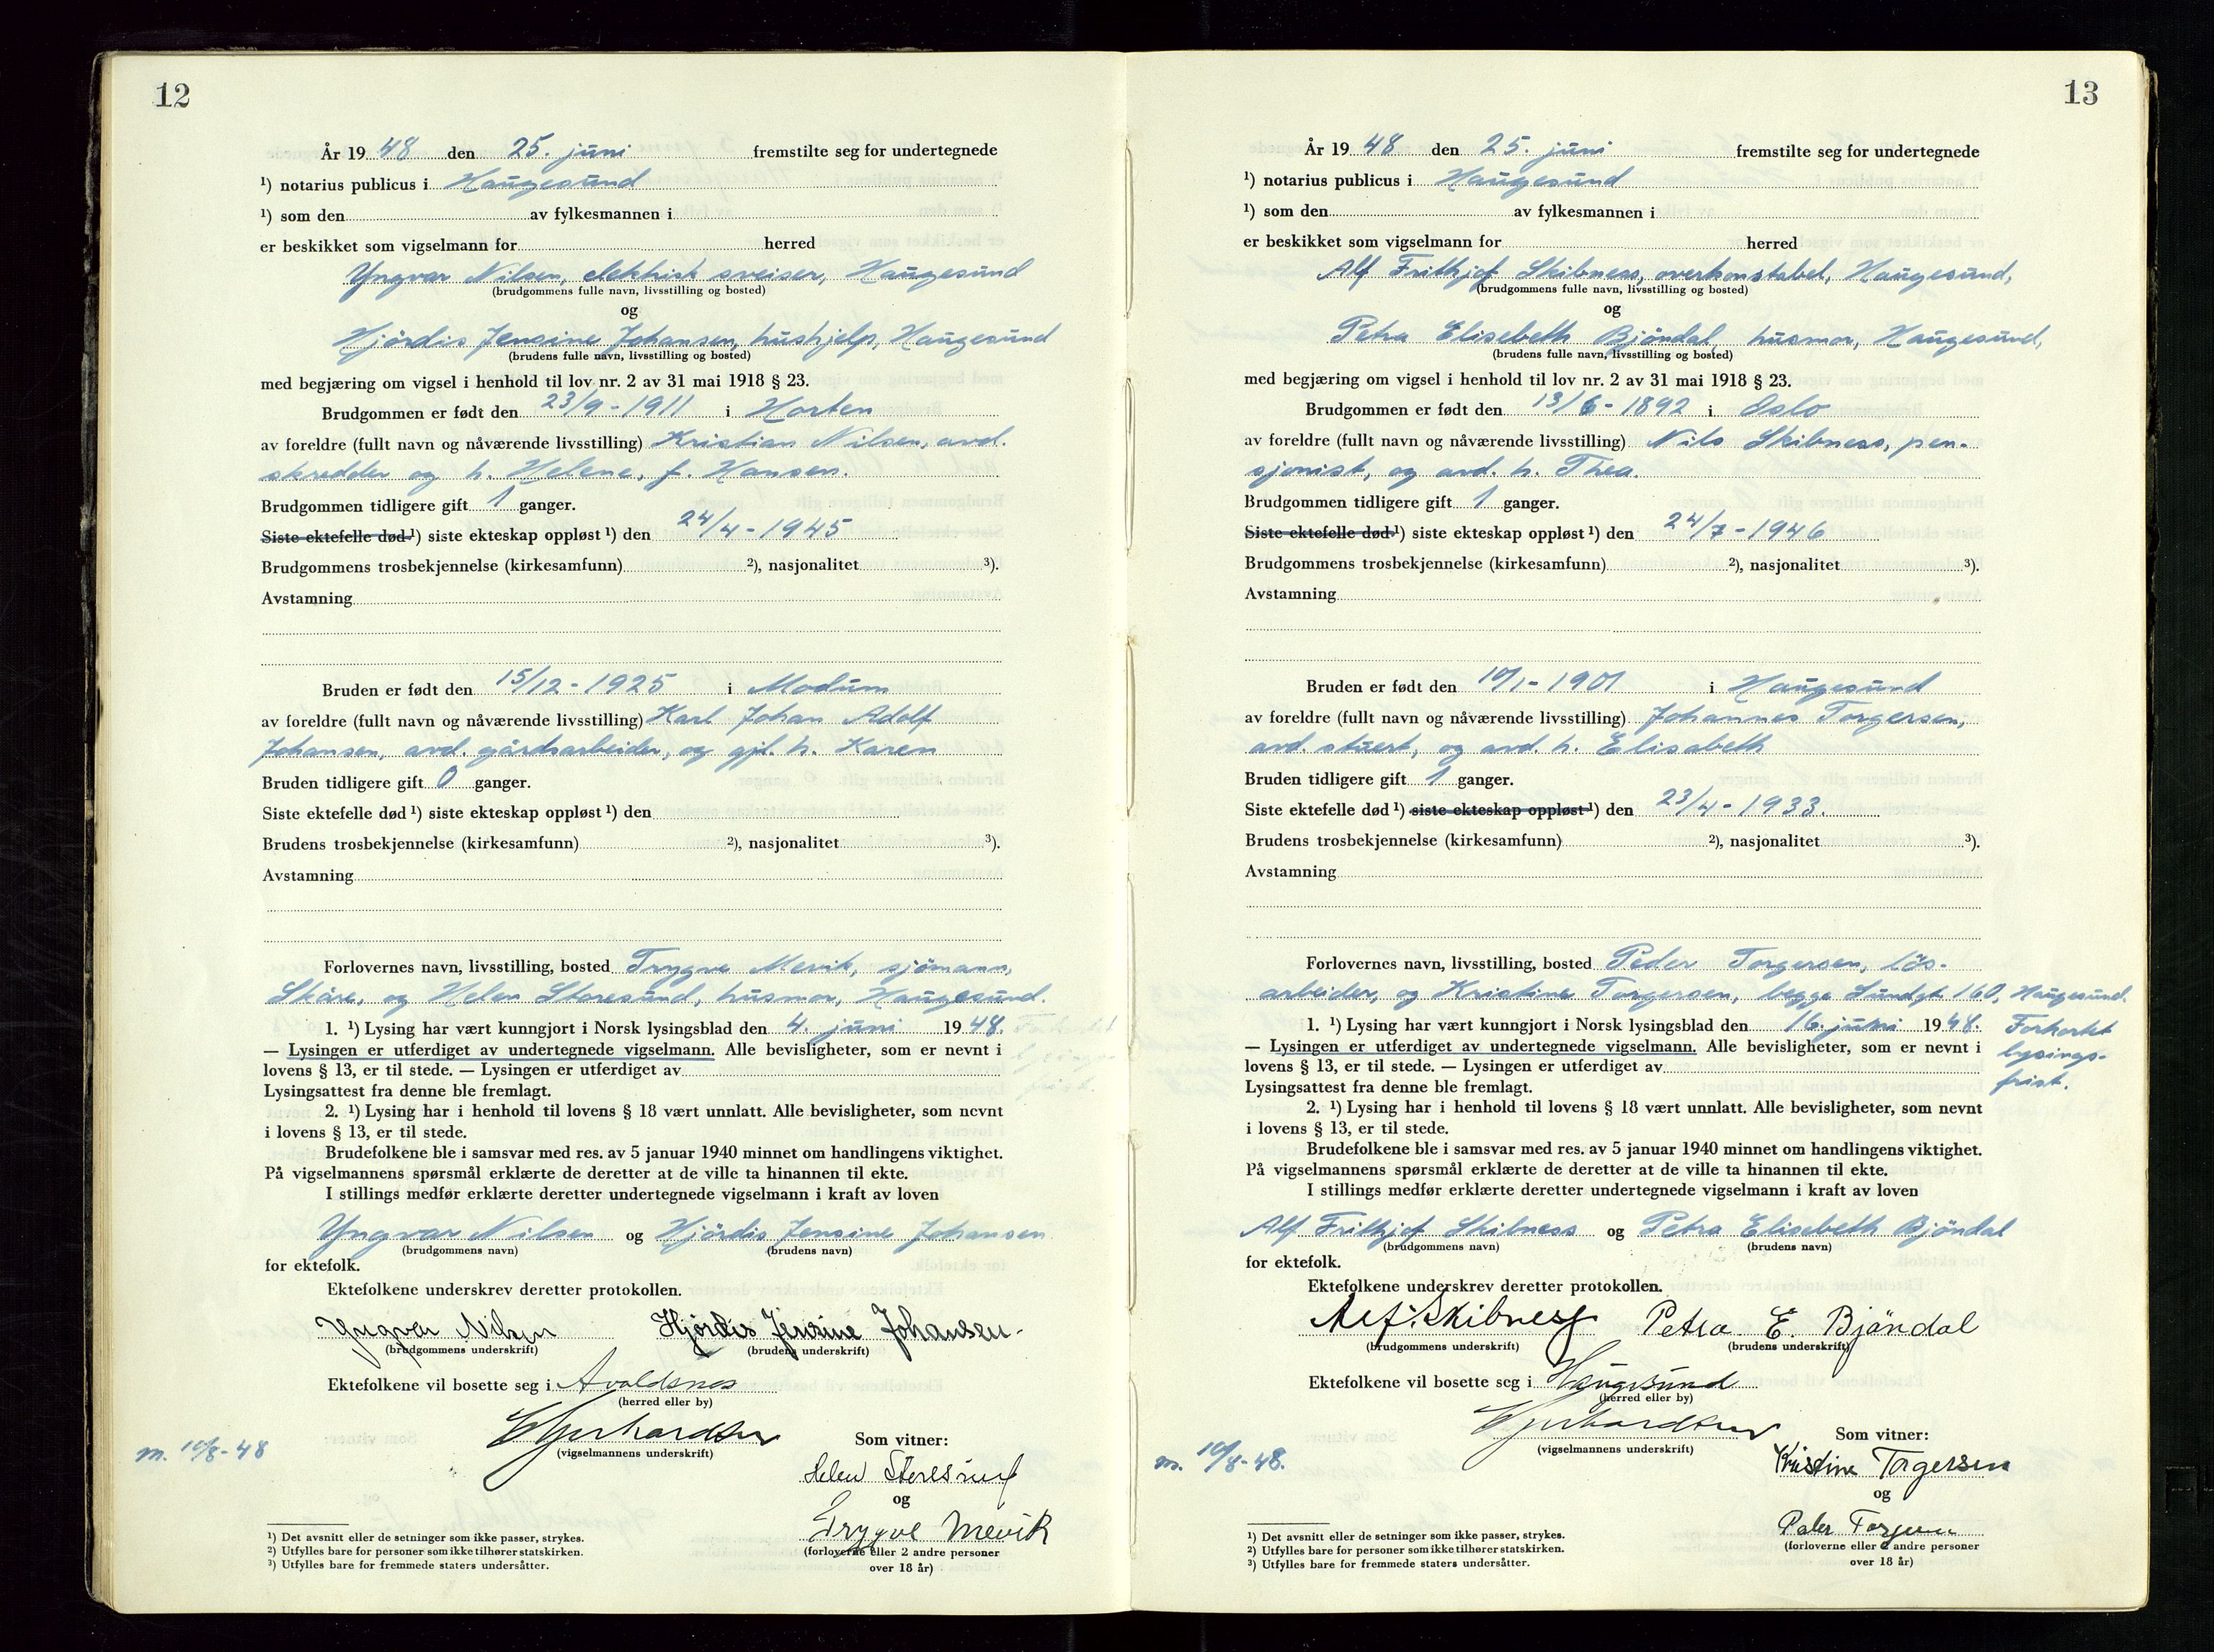 12
År 19 48 den 25. juni fremstilte seg for undertegnede
¹) notarius publicus i Haugesund
¹) som den av fylkesmannen i
er beskikket som vigselmann for herred
Yngvar Nilsen, elektrisk sveiser, Haugesund
(brudgommens fulle navn, livsstilling og bosted)
og
Hjördis Jensine Johansen, hushjelp, Haugesund
(brudens fulle navn, livsstilling og bosted)
med begjæring om vigsel i henhold til lov nr. 2 av 31 mai 1918 § 23.
Brudgommen er født den 23/9 - 1911 i Horten
av foreldre (fullt navn og nåværende livsstilling) Kristian Nilsen, avd.
skredder og h. Helene, f. Hansen.
Brudgommen tidligere gift 1 ganger.
Siste ektefelle død ¹) siste ekteskap oppløst ¹) den 24/4 - 1945
Brudgommens trosbekjennelse (kirkesamfunn) ²), nasjonalitet ³).
Avstamning
Bruden er født den 15/12 - 1925 i Modum
av foreldre (fullt navn og nåværende livsstilling) Karl Johan Adolf
Johansen, avd. gårdsarbeider, og gjl. h. Karen
Bruden tidligere gift 0 ganger.
Siste ektefelle død ¹) siste ekteskap oppløst ¹) den
Brudens trosbekjennelse (kirkesamfunn) ²), nasjonalitet ³).
Avstamning
Forlovernes navn, livsstilling, bosted Trygve Mevik, sjömann,
Skåre, og Helen Storesund, husmor, Haugesund.
1. ¹) Lysing har vært kunngjort i Norsk lysingsblad den 4. juni 19 48.
— Lysingen er utferdiget av undertegnede vigselmann. Alle bevisligheter, som er nevnt i
lovens § 13, er til stede. — Lysingen er utferdiget av
Lysingsattest fra denne ble fremlagt.
2. ¹) Lysing har i henhold til lovens § 18 vært unnlatt. Alle bevisligheter, som nevnt
i lovens § 13, er til stede.
Brudefolkene ble i samsvar med res. av 5 januar 1940 minnet om handlingens viktighet.
På vigselmannens spørsmål erklærte de deretter at de ville ta hinannen til ekte.
I stillings medfør erklærte deretter undertegnede vigselmann i kraft av loven
Yngvar Nilsen og Hjördis Jensine Johansen
(brudgommens navn) (brudens navn)
for ektefolk.
Ektefolkene underskrev deretter protokollen.
Yngvar Nilsen Hjørdis Jensine Johansen.
(brudgommens underskrift) (brudens underskrift)
Ektefolkene vil bosette seg i Avaldsnes
(herred eller by)
(vigselmannens underskrift)
Som vitner:
m. 10/8-48
Helen Storesund
og
Trygve Mevik
(forloverne eller 2 andre personer
over 18 år)
¹) Det avsnitt eller de setninger som ikke passer, strykes.
²) Utfylles bare for personer som ikke tilhører statskirken.
³) Utfylles bare for fremmede staters undersåtter.
13
År 19 48 den 25. juni fremstilte seg for undertegnede
¹) notarius publicus i Haugesund
¹) som den av fylkesmannen i
er beskikket som vigselmann for herred
Alf Frithjof Skibness, overkonstabel, Haugesund,
(brudgommens fulle navn, livsstilling og bosted)
og
Petra Elisebeth Bjöndal, husmor, Haugesund,
(brudens fulle navn, livsstilling og bosted)
med begjæring om vigsel i henhold til lov nr. 2 av 31 mai 1918 § 23.
Brudgommen er født den 13/6 - 1892 i Oslo
av foreldre (fullt navn og nåværende livsstilling) Nils Skibness, pen-
sjonist, og avd. h. Thea.
Brudgommen tidligere gift 1 ganger.
Siste ektefelle død ¹) siste ekteskap oppløst ¹) den 24/7 - 1946
Brudgommens trosbekjennelse (kirkesamfunn) ²), nasjonalitet ³).
Avstamning
Bruden er født den 10/1 - 1901 i Haugesund
av foreldre (fullt navn og nåværende livsstilling) Johannes Torgersen,
avd. stuert, og avd. h. Elisabeth
Bruden tidligere gift 1 ganger.
Siste ektefelle død ¹) siste ekteskap oppløst ¹) den 23/4 - 1933.
Brudens trosbekjennelse (kirkesamfunn) ²), nasjonalitet ³).
Avstamning
Forlovernes navn, livsstilling, bosted Peder Torgersen, lös-
arbeider, og Kristine Torgersen, begge Sundgt. 160, Haugesund.
1. ¹) Lysing har vært kunngjort i Norsk lysingsblad den 16. juni 19 48. Forkortet
— Lysingen er utferdiget av undertegnede vigselmann. Alle bevisligheter, som er nevnt i lysings-
lovens § 13, er til stede. — Lysingen er utferdiget av frist.
Lysingsattest fra denne ble fremlagt.
2. ¹) Lysing har i henhold til lovens § 18 vært unnlatt. Alle bevisligheter, som nevnt
i lovens § 13, er til stede.
Brudefolkene ble i samsvar med res. av 5 januar 1940 minnet om handlingens viktighet.
På vigselmannens spørsmål erklærte de deretter at de ville ta hinannen til ekte.
I stillings medfør erklærte deretter undertegnede vigselmann i kraft av loven
Alf Frithjof Skibness og Petra Elisebeth Bjöndal
(brudgommens navn) (brudens navn)
for ektefolk.
Ektefolkene underskrev deretter protokollen.
Alf. Skibness Petra E. Bjöndal
(brudgommens underskrift) (brudens underskrift)
Ektefolkene vil bosette seg i Haugesund
(herred eller by)
(vigselmannens underskrift)
Som vitner:
m. 10/8-48.
Kristine Torgersen
og
Peder Torgersen
(forloverne eller 2 andre personer
over 18 år)
¹) Det avsnitt eller de setninger som ikke passer, strykes.
²) Utfylles bare for personer som ikke tilhører statskirken.
³) Utfylles bare for fremmede staters undersåtter.